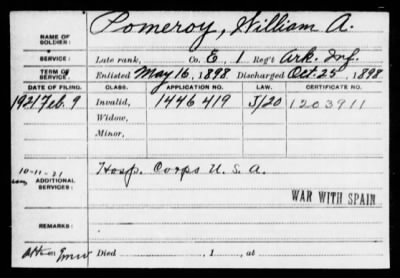 NAME OF SOLDIER: Pomeroy, William A.
SERVICE: Late rank, Co. E, 1 Reg't Ark. Inf.
TERM OF SERVICE: Enlisted May 16, 1898 Discharged Oct. 25, 1898
DATE OF FILING. CLASS. APPLICATION NO. LAW. CERTIFICATE NO.
1921 Feb. 9 Invalid, 1446419 J/20 1203911
Widow,
Minor,
10-11-21
ADDITIONAL SERVICES: Hosp. Corps U. S. A.
WAR WITH SPAIN
REMARKS:
Died , 1 , at